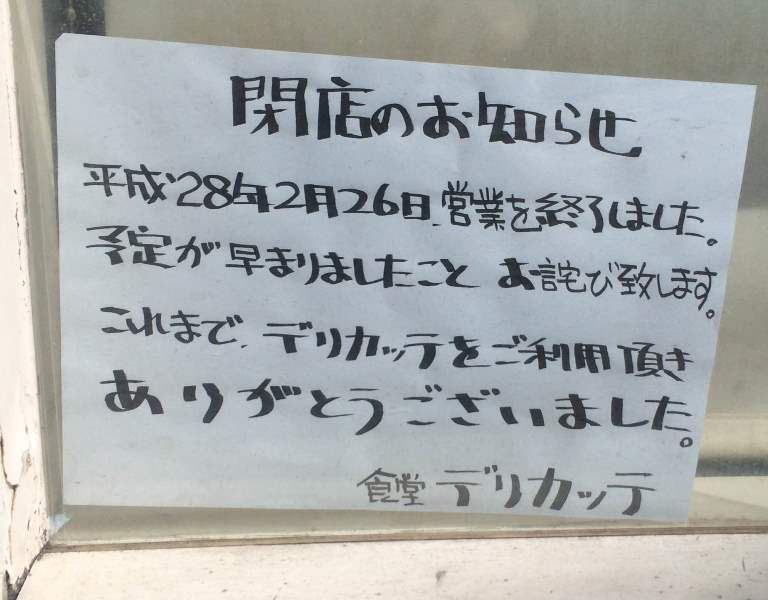 閉店のお知らせ
平成28年2月26日、営業を終了しました。
予定が早まりましたこと お詫び致します。
これまで、デリカッテをご利用頂き
ありがとうございました。
食堂 デリカッテ